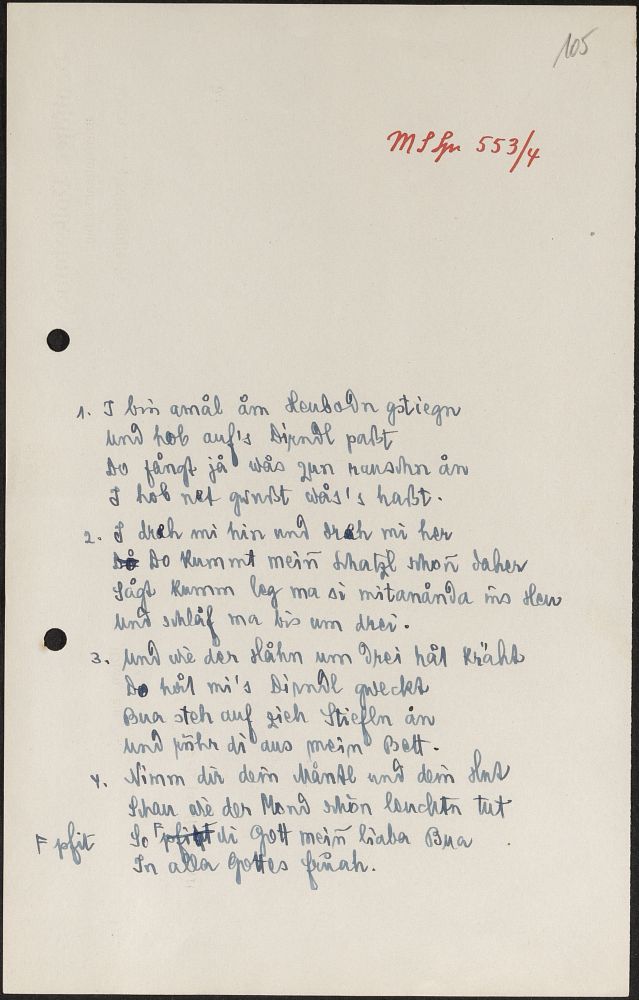 105
MS Spr 553/4
1. I bin amål åm Heubodn gstiegn
Und hob auf's Dirndl paßt
Do fångt jå wås zun rauschn ån
I hob net gwußt wås's haßt.
2. I dreh mi hin und dreh mi her
Do kummt mein Schatzl schon daher
Sågt kumm leg ma si mitanånda ins Heu
Und schlåf ma bis um drei.
3. Und wie der Håhn um drei håt kräht
Do håt mi's Dirndl gweckt
Bua steh auf zieh Stiefln ån
Und führ di aus mein Bett.
4. Nimm dir dein Måntl und dein Hut
Schau wie der Mond schön leuchtn tut
F pfit So F di Gott mein liaba Bua
In aller Gottes fruah.